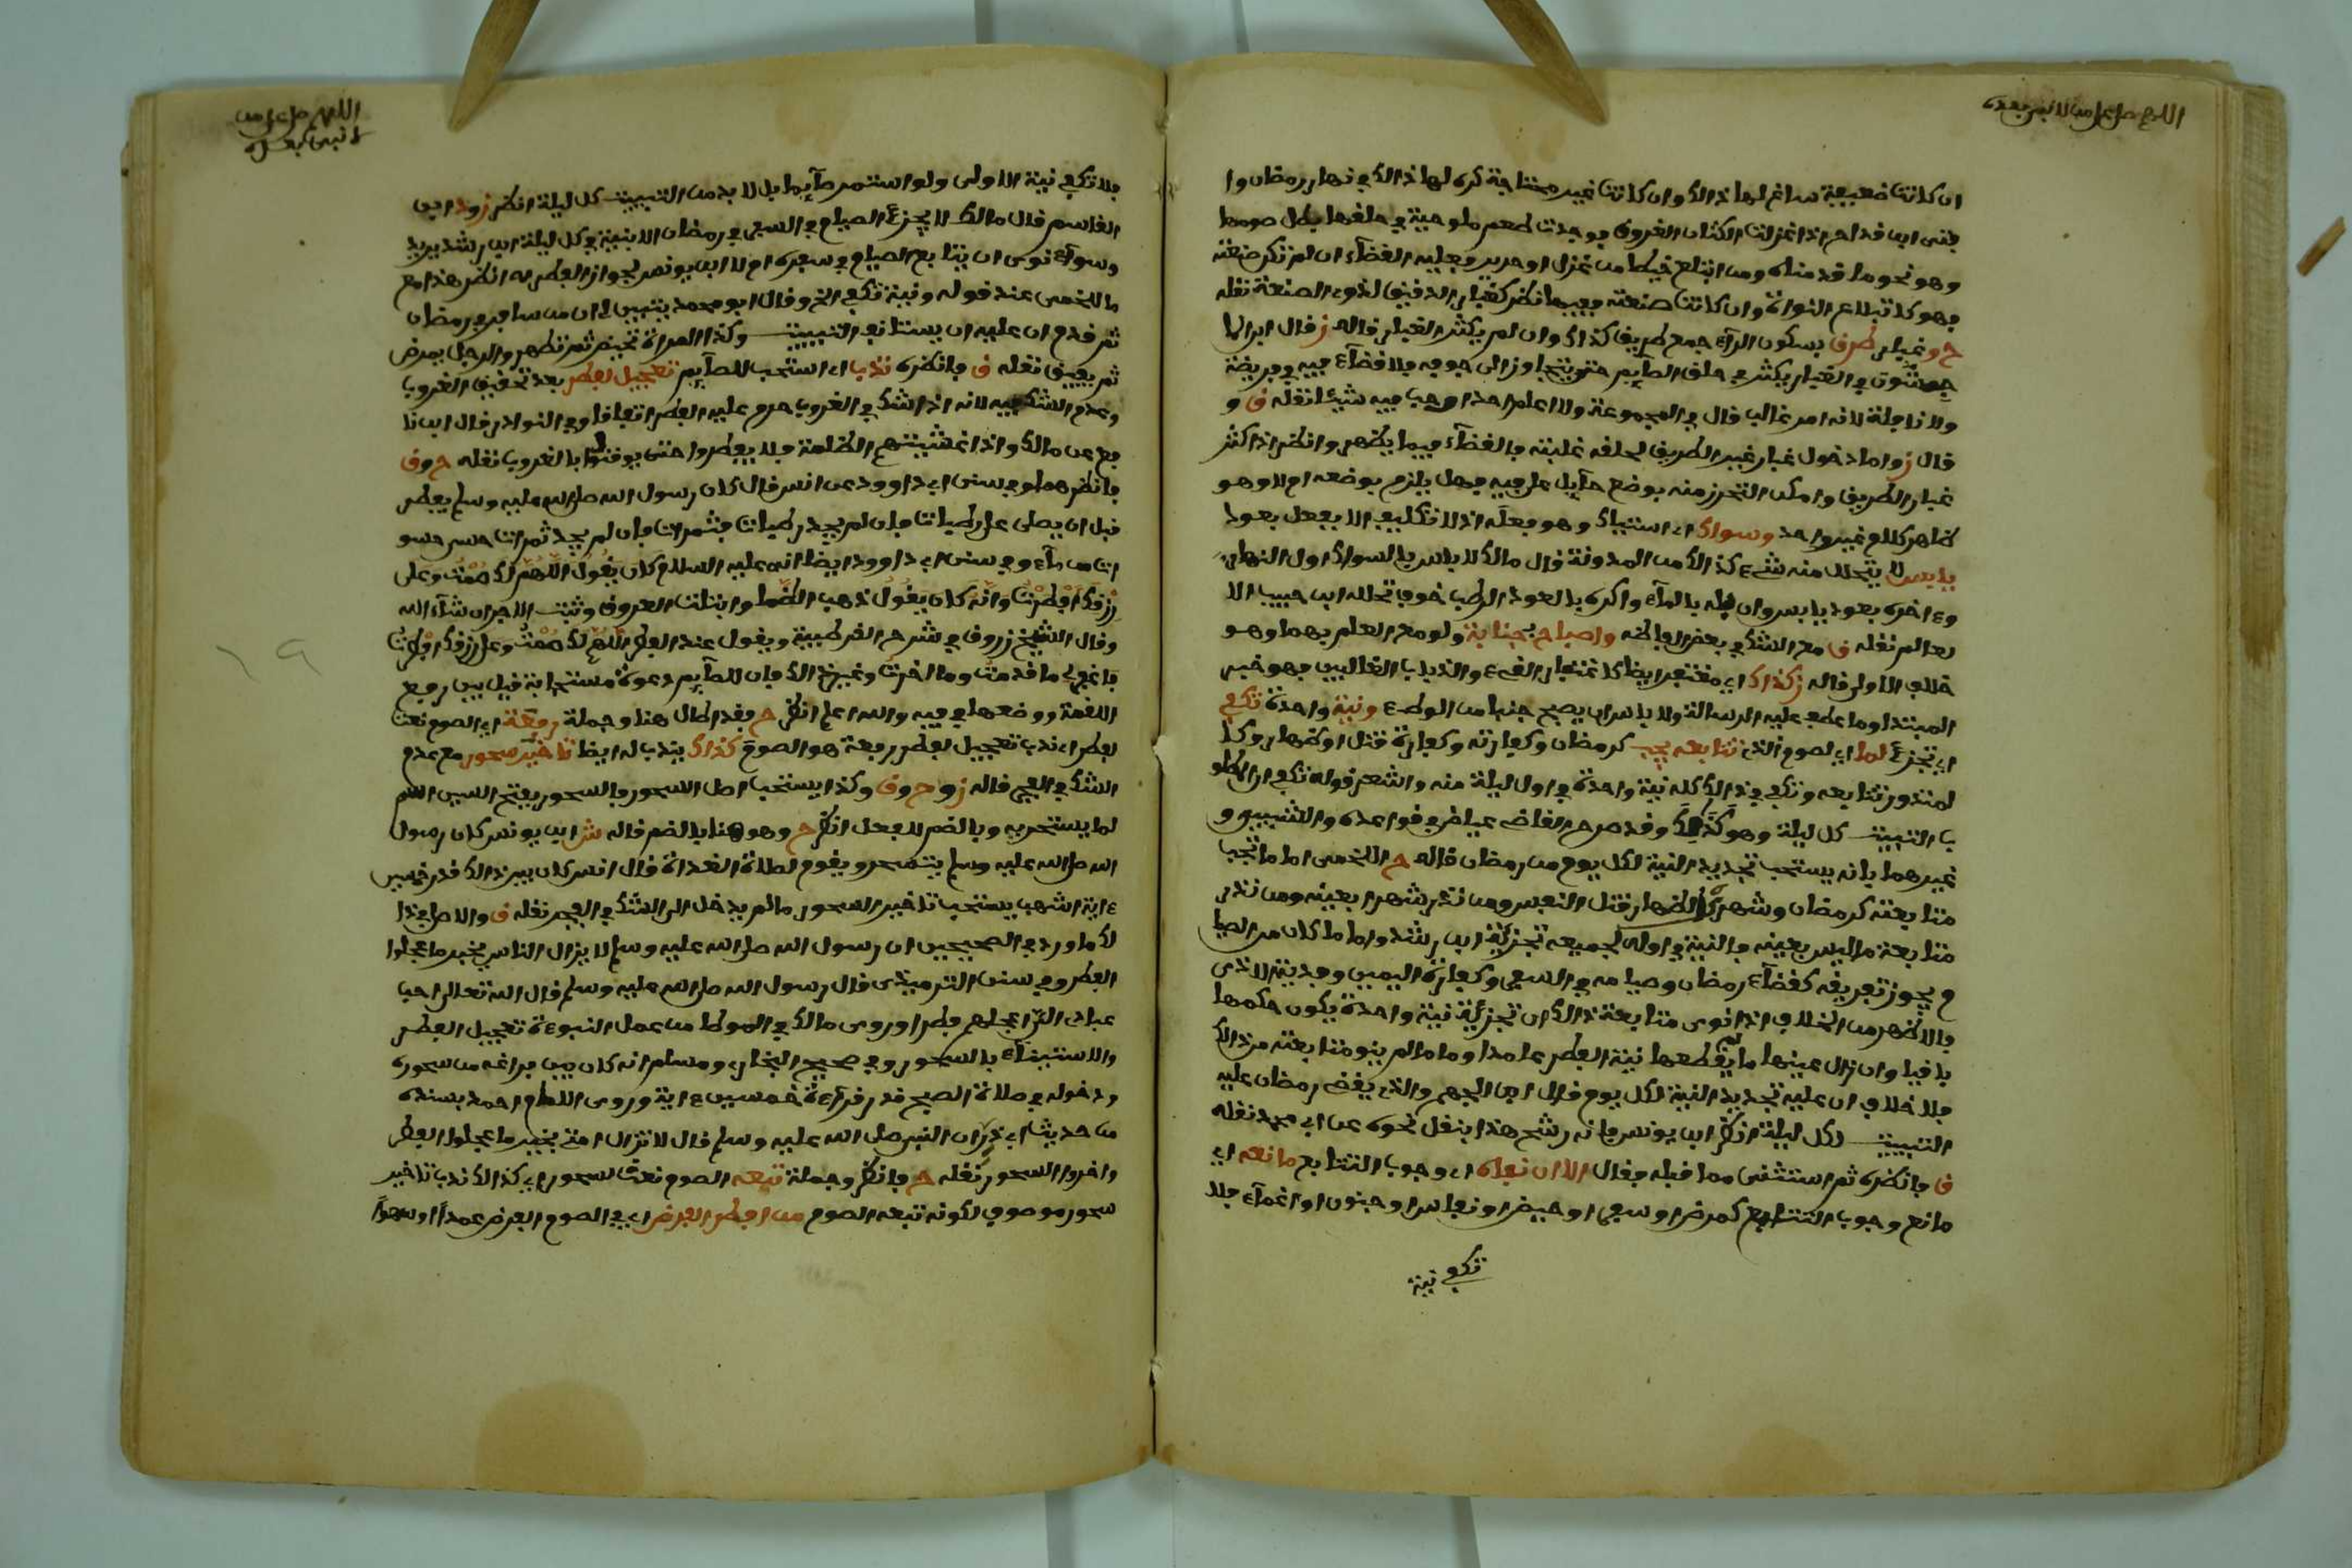 اللهم صل على من لا نبي بعده
ان كانت ضعيفة ساغ لها ذالك وان كانت غير محتاجة كره لها ذالك في نهار رمضان وا
فتى ابن قداح اذا غزلت الكتان المعروف فوجدت طعم ملوحية في حلقها بطل صومها
وهو نحو ما قدمناه ومن ابتلع خيطا من غزل او حرير فعليه القضاء ان لم تكن صنعته
فهو كابتلاع النواة وان كانت صنعته ففيها نظر كغبار الدقيق لذوي الصنعة نقله
ح وغبار طرق بسكون الراء جمع طريق كذاك وان لم يكثر الغبار قاله ز قال ابن الما
جشون في الغبار يكثر في حلق الصايم حتى يتجاوز الى جوفه فلا قضاء فيه في فريضة
ولا نافلة لانه امر غالب قال في المجموعة ولا اعلم احدا اوجب فيه شيئا نقله ق و
قال ز واما دخول غبار غير الطريق لحلقه غلبته فالقضاء فيما يظهر وانظر اذا كثر
غبار الطريق وامكن التحرز منه بوضع حايل على فيه فهل يلزم بوضعه ام لا وهو
ظاهر كلام غير واحد وسواك اي استياك وهو فعله اذ لا تكليف الا بفعل بعود
يابس لا يتحلل منه شيء كذالك من المدونة قال مالك لا باس بالسواك اول النهار
وءاخره بعود يابس وان بله بالماء واكره بالعود الرطب خوف تحلله ابن حبيب الا
لعالم نقله ق مع الشك في بعض الفاظه واصباح بجنابة ولو مع العلم بهما وهو
خلاف الاولى قاله ز كذاك اي مغتفر ايضا كاغتفار القيء والذباب الغالبين فهو خبر
المبتدا وما عطف عليه الرسالة ولا باس ان يصبح جنبا من الوطء ونية واحدة تكفي
اي تجزئ لما اي لصوم الذي تتابعه يجب كرمضان وكفارته وكفارة قتل او ظهار وكا
لمنذور تتابعه وتكفي في ذالك كله نية واحدة في اول ليلة منه واشعر قوله تكفي ان المطلو
ب التبييت كل ليلة وهو كذالك وقد صرح القاضي عياض في قواعده والاشبيبي و
غيرهما بانه يستحب تجديد النية لكل يوم من رمضان قاله ح اللخمي اما ما تجب
متابعته كرمضان وشهري الظهار وقتل النفس ومن نذر شهرا بعينه ومن نذر
متابعة ما ليس بعينه فالنية في اوله لجميعه تجزئه ابن رشد واما ما كان من الصيا
م يجوز تفريقه كقضاء رمضان وصيامه في السفر وكفارة اليمين وفدية الاذى
فالاظهر من الخلاف اذا نوى متابعة ذالك ان تجزئه نية واحدة يكون حكمها
باقيا وان زال عينها ما لم يقطعها نية الفطر عامدا واما ما لم ينو متابعته من ذالك
فلا خلاف ان عليه تجديد النية لكل يوم قال ابن الجهم والذي يقضي رمضان عليه
التبييت لكل ليلة انظر ابن يونس فانه رشح هذا بنقل نحوه عن ابي محمد نقله
ق فانظره ثم استثنى مما قبله فقال الا ان نفاه اي وجوب التتابع مانعه اي
مانع وجوب التتابع كمرض او سفر او حيض او نفاس او جنون او اغماء فلا
تكفي نية
اللهم صل على من
لا نبي بعده
فلا تكفي نية الاولى ولو استمر صايما بل لا بد من التبييت كل ليلة انظر ز وذ ابن
القاسم قال مالك لا يجزئ الصيام في السفر في رمضان الا بنية في كل ليلة ابن رشد يريد
وسواء نوى ان يتابع الصيام في سفره ام لا ابن يونس لجواز الفطر له انظر هذا مع
ما للخمي عند قوله ونية تكفي الخ وقال ابو محمد يتبين لي ان من سافر في رمضان
ثم قدم ان عليه ان يستانف التبييت وكذا المراة تحيض ثم تطهر والرجل يمرض
ثم يفيق نقله ق فانظره ندبا اي استحب للصايم تعجيل لفطر بعد تحقيق الغروب
وعدم الشك فيه لانه اذا شك في الغروب حرم عليه الفطر اتفاقا وفي النوادر قال ابن نا
فع عن مالك واذا غشيتهم الظلمة فلا يفطروا حتى يوقنوا بالغروب نقله ح وق
فانظرهما وفي سنن ابي داوود عن انس قال كان رسول الله صلى الله عليه وسلم يفطر
قبل ان يصلي على رطبات فان لم يجد رطبات فثمرات فان لم يجد ثمرات حسى حسو
ات من ماء وفي سنن ابي داوود ايضا انه عليه السلام كان يقول اللهم لك صمت وعلى
رزقك افطرت وانه كان يقول ذهب الظما وابتلت العروق وثبت الاجر ان شاء الله
وقال الشيخ زروق في شرح القرطبية ويقول عند الفطر اللهم لك صمت وعلى رزقك افطرت
فاغفر لي ما قدمت وما اخرت وغير ذالك فان للصايم دعوة مستجابة قيل بين رفع
اللقمة ووضعها في فيه والله اعلم انظر ح فقد اطال هنا وجملة رفعه اي الصوم نعت
لفطر اي ندب تعجيل لفطر رفعه هو الصوم كذاك يندب له ايضا تاخير سحور مع عدم
الشك في الفجر قاله ز وح وق وكذا يستحب اصل السحور فالسحور بفتح السين اسم
لما يتسحر به وبالضم للفعل انظر ح وهو هنا بالضم قاله ش ابن يونس كان رسول
الله صلى الله عليه وسلم يتسحر ويقوم لصلاة الغداة قال انس كان بين ذالك قدر خمسين
ءاية اشهب يستحب تاخير السحور ما لم يدخل الى الشك في الفجر نقله ق والاصل في ذا
لك ما ورد في الصحيحين ان رسول الله صلى الله عليه وسلم لا يزال الناس بخير ما عجلوا
الفطر وفي سنن الترميذي قال رسول الله صلى الله عليه وسلم قال الله تعالى احب
عبادي الي اعجلهم فطرا وروى مالك في الموطا من عمل النبوءة تعجيل الفطر
والاستيناء بالسحور وفي صحيح البخاري ومسلم انه كان بين فراغه من سحوره
ودخوله في صلاة الصبح قدر قراءة خمسين ءاية وروى الامام احمد بسنده
من حديث ابي ذر ان النبي صلى الله عليه وسلم قال لا تزال امتي بخير ما عجلوا الفطر
واخروا السحور نقله ح فانظر وجملة تبعه الصوم نعت لسحور اي كذالك ندب تاخير
سحور موصوف لكونه تبعه الصوم من افطر الفرض اي في الصوم الفرض عمدا او سهوا